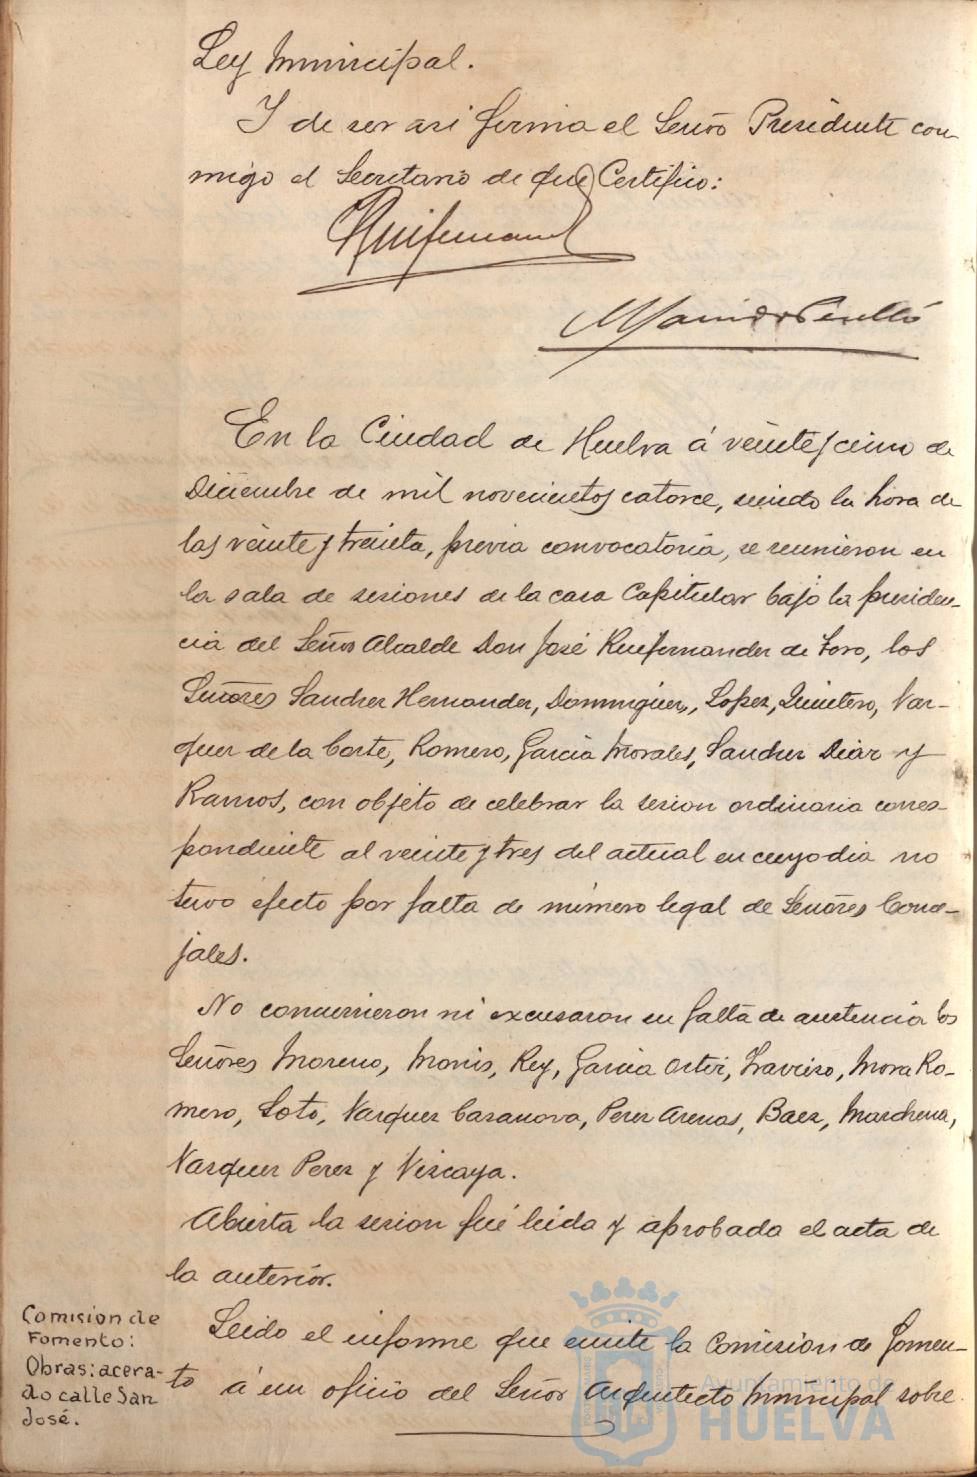 Ley Municipal.
Y de ser asi firma el Señor Presidente con-
migo el Secretario de que Certifico:
En la Ciudad de Huelva á veinte y cinco de
Diciembre de mil novecientos catorce, siendo la hora de
las veinte y treinta, previa convocatoria, se reunieron en
la sala de sesiones de la casa Capitular bajo la presiden-
cia del Señor Alcalde Don José Ruifernandez de Toro, los
Señores Sanchez Hernandez, Dominguez, Lopez, Quintero, Vaz-
quez de la Corte, Romero, Garcia Morales, Sanchez Diaz y
Ramos, con objeto de celebrar la sesion ordinaria corres-
pondiente al veinte y tres del actual en cuyo dia no
tuvo efecto por falta de número legal de Señores Conce-
jales.
No concurrieron ni excusaron su falta de asistencia los
Señores Moreno, Monis, Rey, Garcia Ortiz, Traviso, Mora Ro-
mero, Soto, Vazquez Casanova, Perez Arenas, Baez, Marchena,
Vazquez Perez y Vizcaya.
Abierta la sesion fué leida y aprobada el acta de
la anterior.
Comision de
Fomento:
Obras: acera-
do calle San
José.
Leido el informe que emite la Comision de Fomen-
to á un oficio del Señor Arquitecto Municipal sobre
Ayuntamiento de
HUELVA